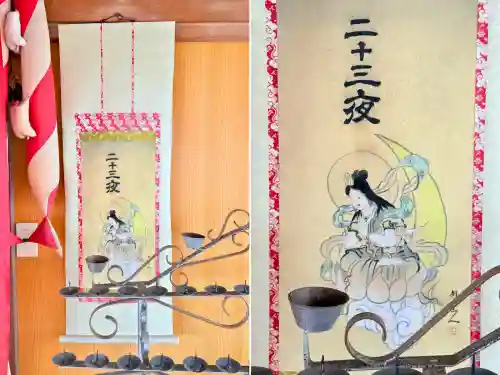 二十三夜
二十三夜